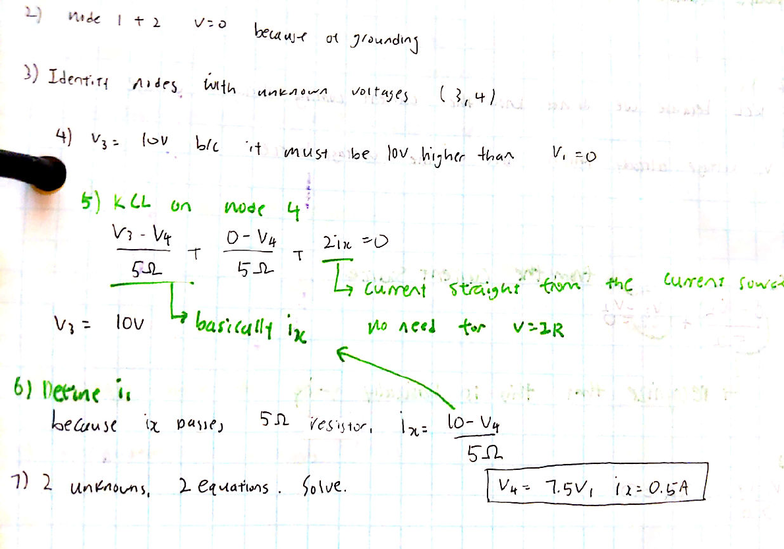 2) node 1 + 2 V=0 because of grounding
3) Identify nodes with unknown voltages (3,4)
4) V₃ = 10V b/c it must be 10V higher than V₁ = 0
5) KCL on node 4:
(V₃ - V₄)/5Ω + (0 - V₄)/5Ω + 2ix = 0
↳ current straight from the current source
V₃ = 10V ↳ basically ix no need for V=IR
6) Define i₁
because ix passes 5Ω resistor, ix = (10 - V₄)/5Ω
7) 2 unknowns, 2 equations. Solve.
V₄ = 7.5V, ix = 0.5A